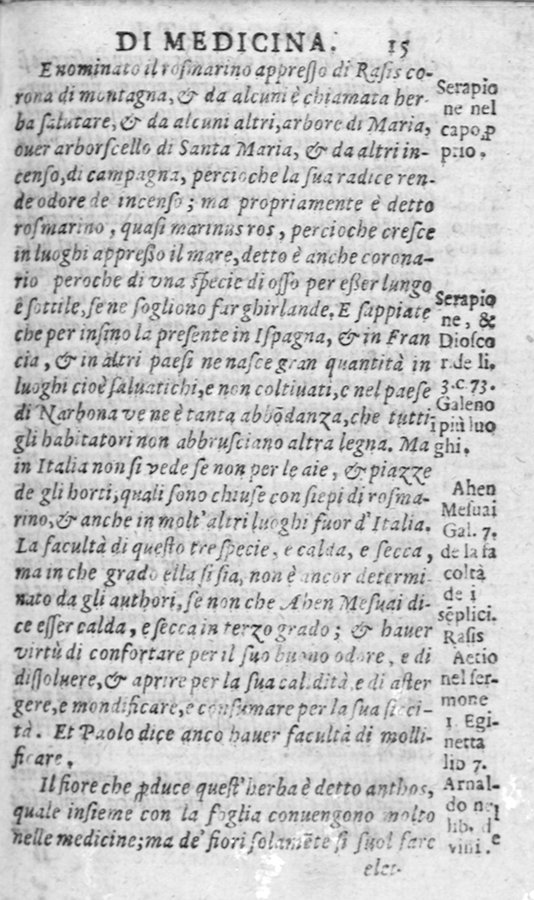 DI MEDICINA. 15
E nominato il rosmarino appresso di Rasis co-
rona di montagna, & da alcuni è chiamata her-
ba salutare, & da alcuni altri, arbore di Maria,
ouer arborscello di Santa Maria, & da altri in-
censo, di campagna, percioche la sua radice ren-
de odore de incenso; ma propriamente è detto
rosmarino, quasi marinus ros, percioche cresce
in luoghi appresso il mare, detto è anche corona-
rio peroche di vna specie di osso per esser lungo
è sottile, se ne sogliono far ghirlande. E sappiate
che per insino la presente in Ispagna, & in Fran
cia, & in altri paesi ne nasce gran quantità in
luoghi cioè saluatichi, e non coltiuati, e nel paese
di Narbona ve ne è tanta abbōdanza, che tutti
gli habitatori non abbrusciano altra legna. Ma
in Italia non si vede se non per le aie, & piazze
de gli horti, quali sono chiuse con siepi di rosma-
rino, & anche in molt'altri luoghi fuor d'Italia.
La facultà di questo tre specie, e calda, e secca,
ma in che grado ella si sia, non è ancor determi
nato da gli authori, se non che Ahen Mesuai di-
ce esser calda, e secca in terzo grado; & hauer
virtù di confortare per il suo buono odore, e di
dissoluere, & aprire per la sua calidità, e di aster
gere, e mondificare, e consumare per la sua sicci-
tà. Et Paolo dice anco hauer facultà di molli-
ficare.
Il fiore che ꝓduce quest'herba è detto anthos,
quale insieme con la foglia conuengono molto
nelle medicine; ma de' fiori solamēte si suol fare
elet-
Serapio
ne nel
capo ꝓ
prio.
Serapio
ne, &
Diosco
r. de li.
3. c. 73.
Galeno
i più luo
ghi.
Ahen
Mesuai
Gal. 7.
de la fa
coltà
de i
sēplici.
Rasis
Aetio
nel ser-
mone
1. Egi-
netta
lib 7.
Arnal-
do nel
lib. d
vini. e